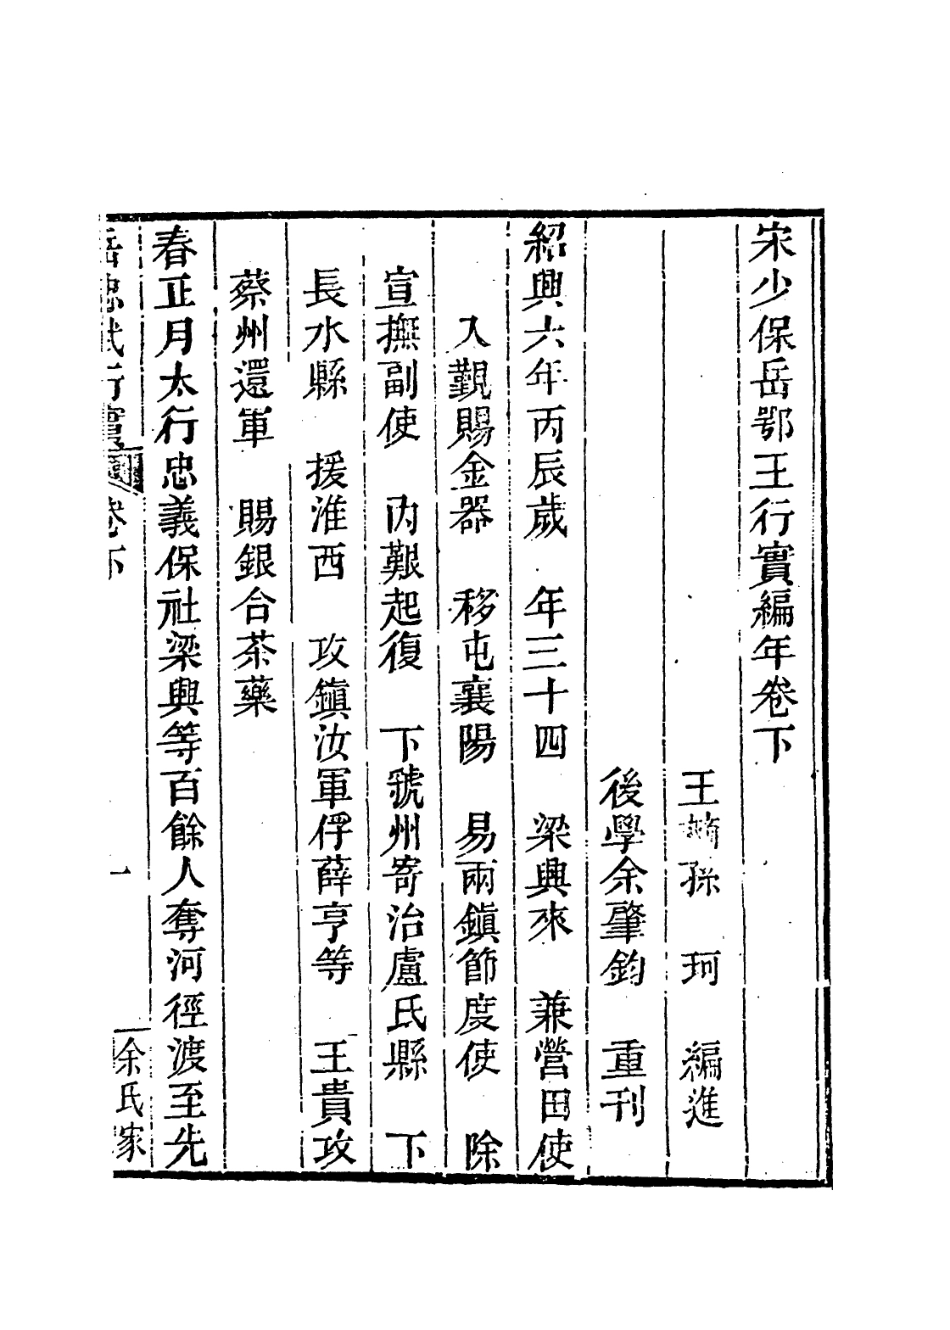 宋少保岳鄂王行實編年卷下
王嫡孫 珂 編進
後學余肇鈞 重刊
紹興六年丙辰歲 年三十四 梁興來 兼營田使
入覲賜金器 移屯襄陽 易兩鎮節度使 除
宣撫副使 內艱起復 下虢州寄治盧氏縣 下
長水縣 援淮西 攻鎮汝軍俘薛亨等 王貴攻
蔡州還軍 賜銀合茶藥
春正月太行忠義保社梁興等百餘人奪河徑渡至先
岳忠武行實 卷下 一 余氏家